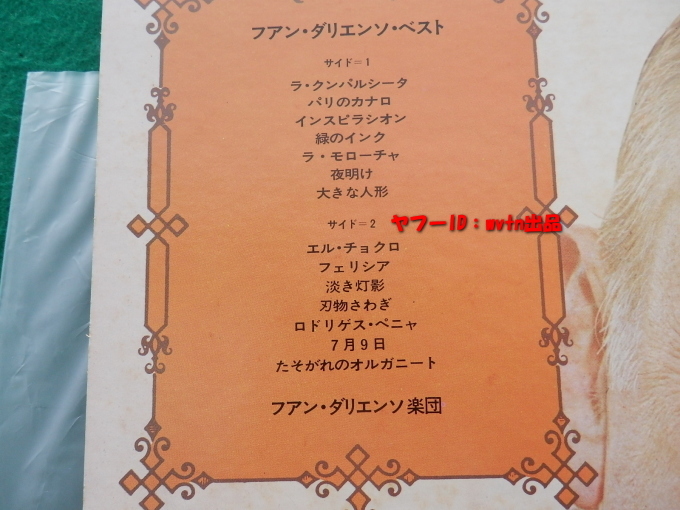 フアン・ダリエンソ・ベスト
サイド=1
ラ・クンパルシータ
パリのカナロ
インスピラシオン
緑のインク
ラ・モローチャ
夜明け
大きな人形
サイド=2
ヤフーID：mvtn出品
エル・チョクロ
フェリシア
淡き灯影
刃物さわぎ
ロドリゲス・ペニャ
7月9日
たそがれのオルガニート
フアン・ダリエンソ楽団